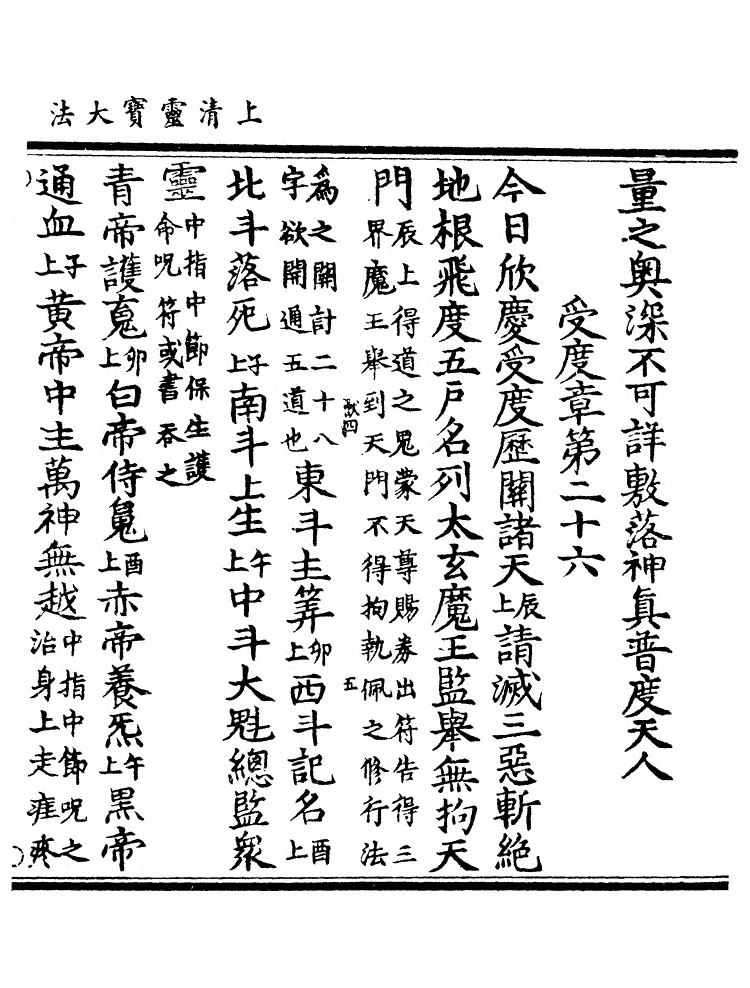 上清靈寶大法
量之奧深不可詳敷落神眞普度天人
受度章第二十六
今日欣慶受度歷關諸天辰上請滅三惡斬絶
地根飛度五戶名列太玄魔王監舉無拘天
門辰上得道之鬼蒙天尊賜券出符告得三
界魔王舉到天門不得拘執佩之修行法
五
為之關計二十八
字欲開通五道也東斗主筭卯上西斗記名酉上
北斗落死子上南斗上生午上中斗大魁總監衆
靈中指中節保生護
命呪符或書吞之
青帝護䰟卯上白帝侍魄酉上赤帝養炁午上黑帝
通血子上黃帝中主萬神無越中指中節呪之
治身上走疰疼